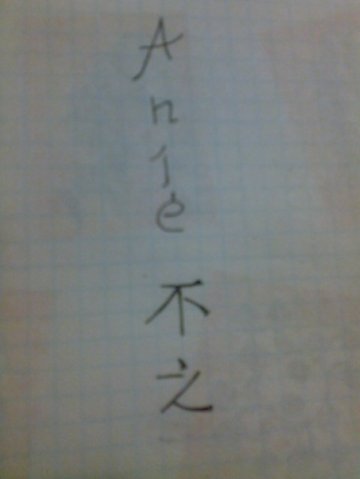 Anie不之